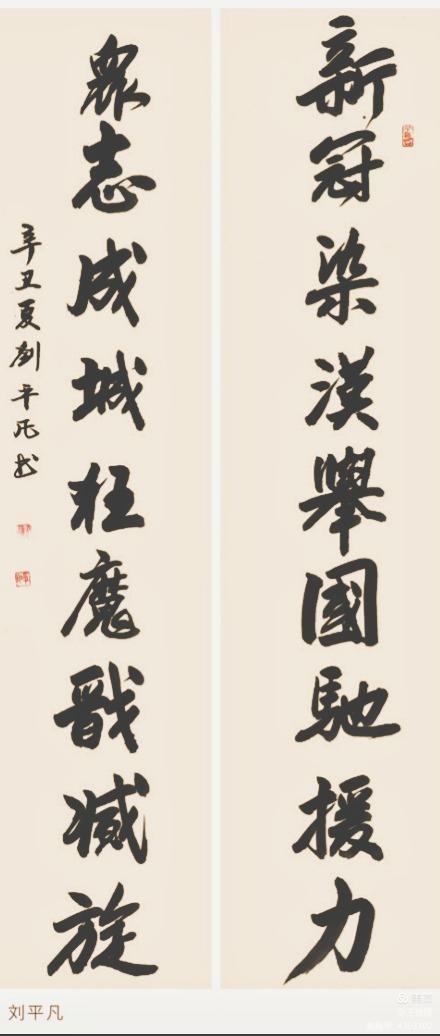 新冠染漢舉國馳援力
眾志成城狂魔戩滅旋
辛丑夏劉平凡书
刘平凡